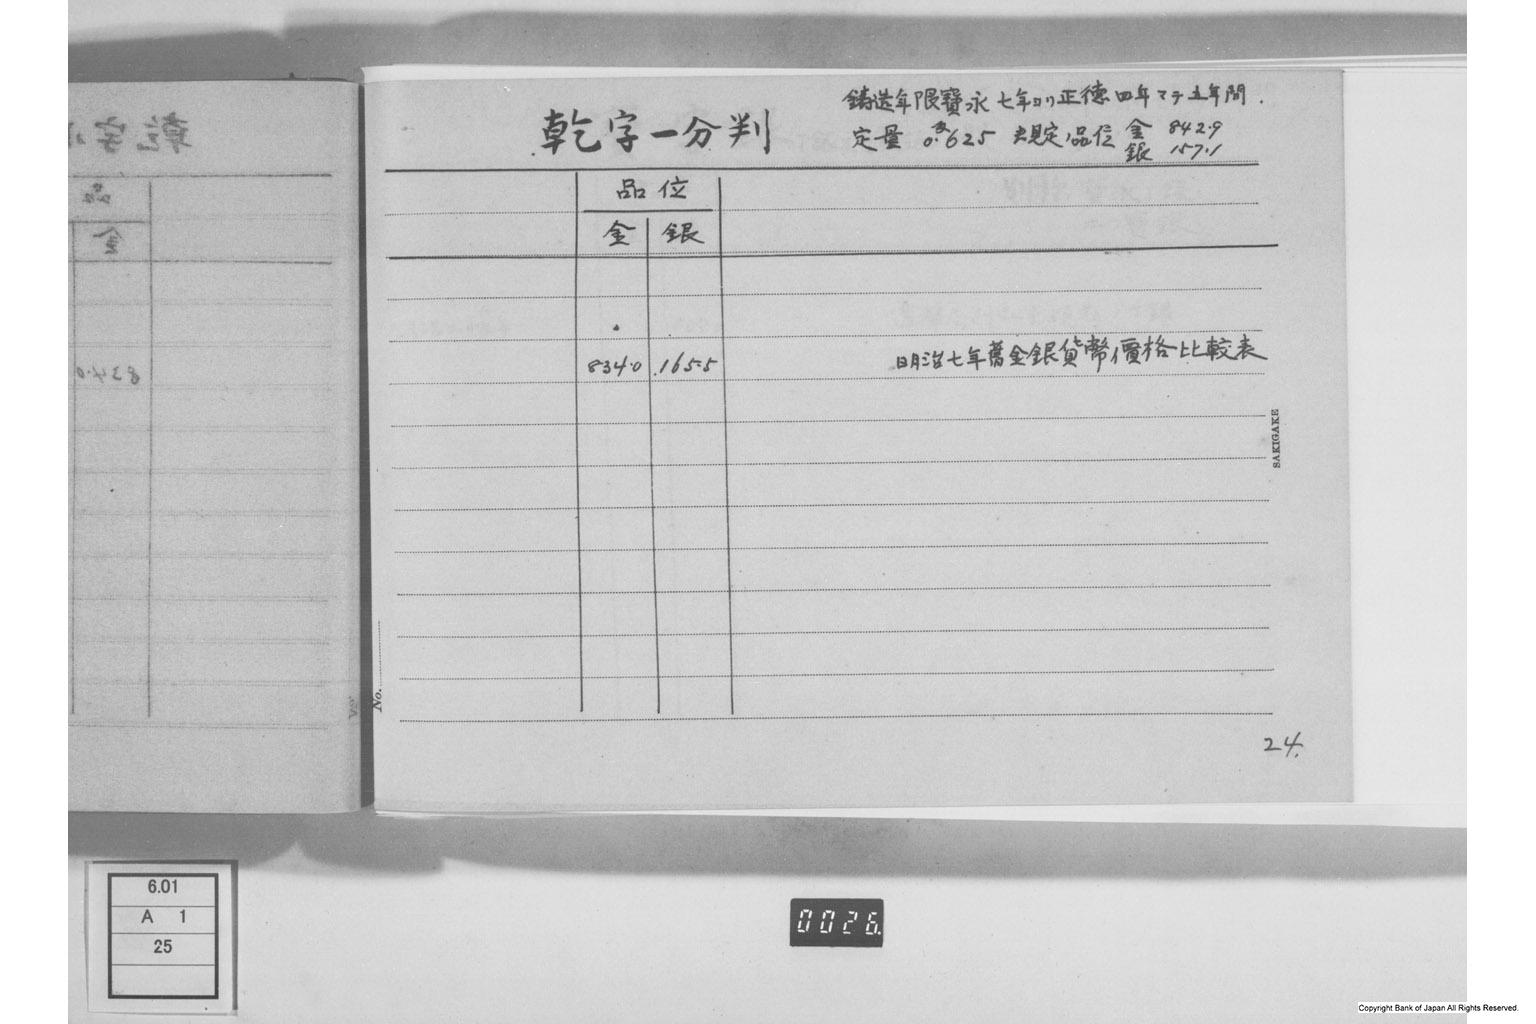 乾字一分判
鋳造年限寶永七年ヨリ正徳四年マテ五年間.
定量 0.625 規定品位 金 842.9
銀 157.1
品位
金 銀
834.0 165.5 明治七年舊金銀貨幣價格比較表
SAKIGAKE
No.
24.
乾字
品
金
834.0
6.01
A 1
25
0026.
Copyright Bank of Japan All Rights Reserved.